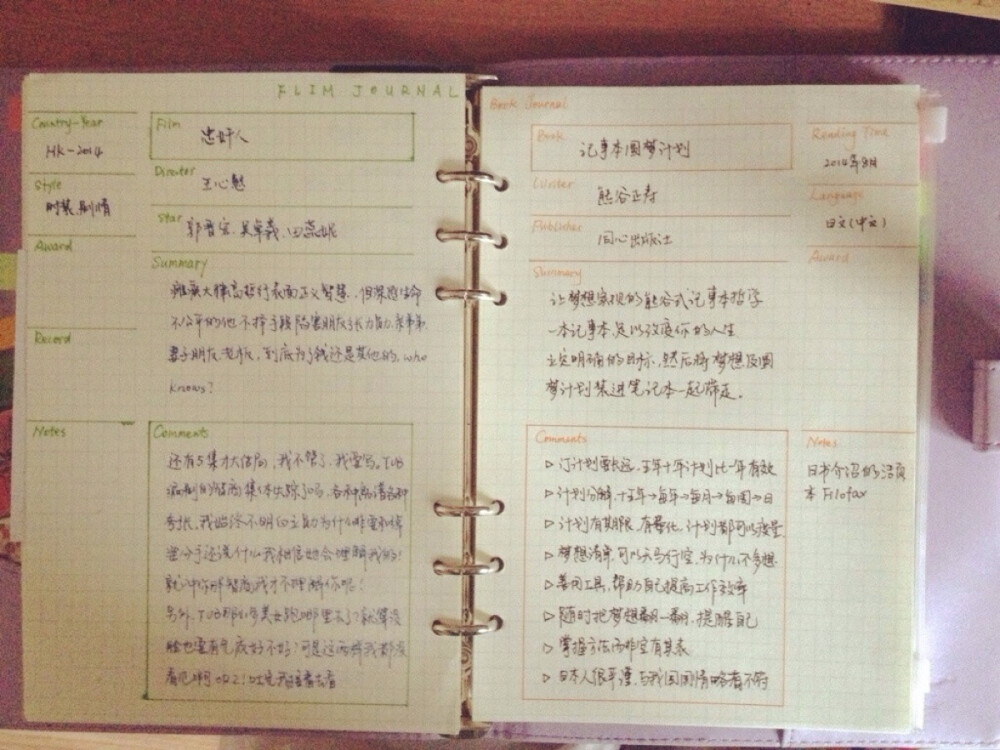 FLIM JOURNAL
Country-Year
HK-2014
Film
忠奸人
Style
时装.剧情
Director
王心慰
Star
郭晋安、吴卓羲、田蕊妮
Award
Record
Summary
大律高哲行表面正义智慧,但某感生命
不公平的他不择手段陷害朋友张力勤,
妻子朋友老板,到底为了钱还是其他的,who
knows?
Notes
Comments
还有5集才大结局,我不管了,我要骂,TVB
编剧的智商集体失踪了吗,各种
我始终不明白立勤为什么
什么我相信她会理解我的!
就冲你那智商我才不理解你呢!
另外,TVB那么多美女跑哪里去了?就算没
脸也要有气质好不好?可是这两样我都没
看见啊
Book Journal
Book
记事本圆梦计划
Reading Time
2014年8月
Writer
熊谷正寿
Language
日文(中文)
Publisher
同心出版社
Award
Summary
让梦想实现的熊谷式记事本哲学
一本记事本足以改变你的人生
立定明确的目标,然后将梦想及圆
梦计划装进笔记本一起带走.
Comments
▷订计划要长远,五年十年计划比一年有效
▷计划分解,十五年→每年→每月→每周→日
▷计划有期限,有量化,计划都可以按量
▷梦想清单,可以天马行空,为什么不多想
▷善用工具,帮助自己提高工作效率
▷随时把梦想翻一翻,提醒自己
▷掌握方法而非空有其表
▷日本人很严谨,与我国国情略有不符
Notes
日书介绍的活页
本 Filofax